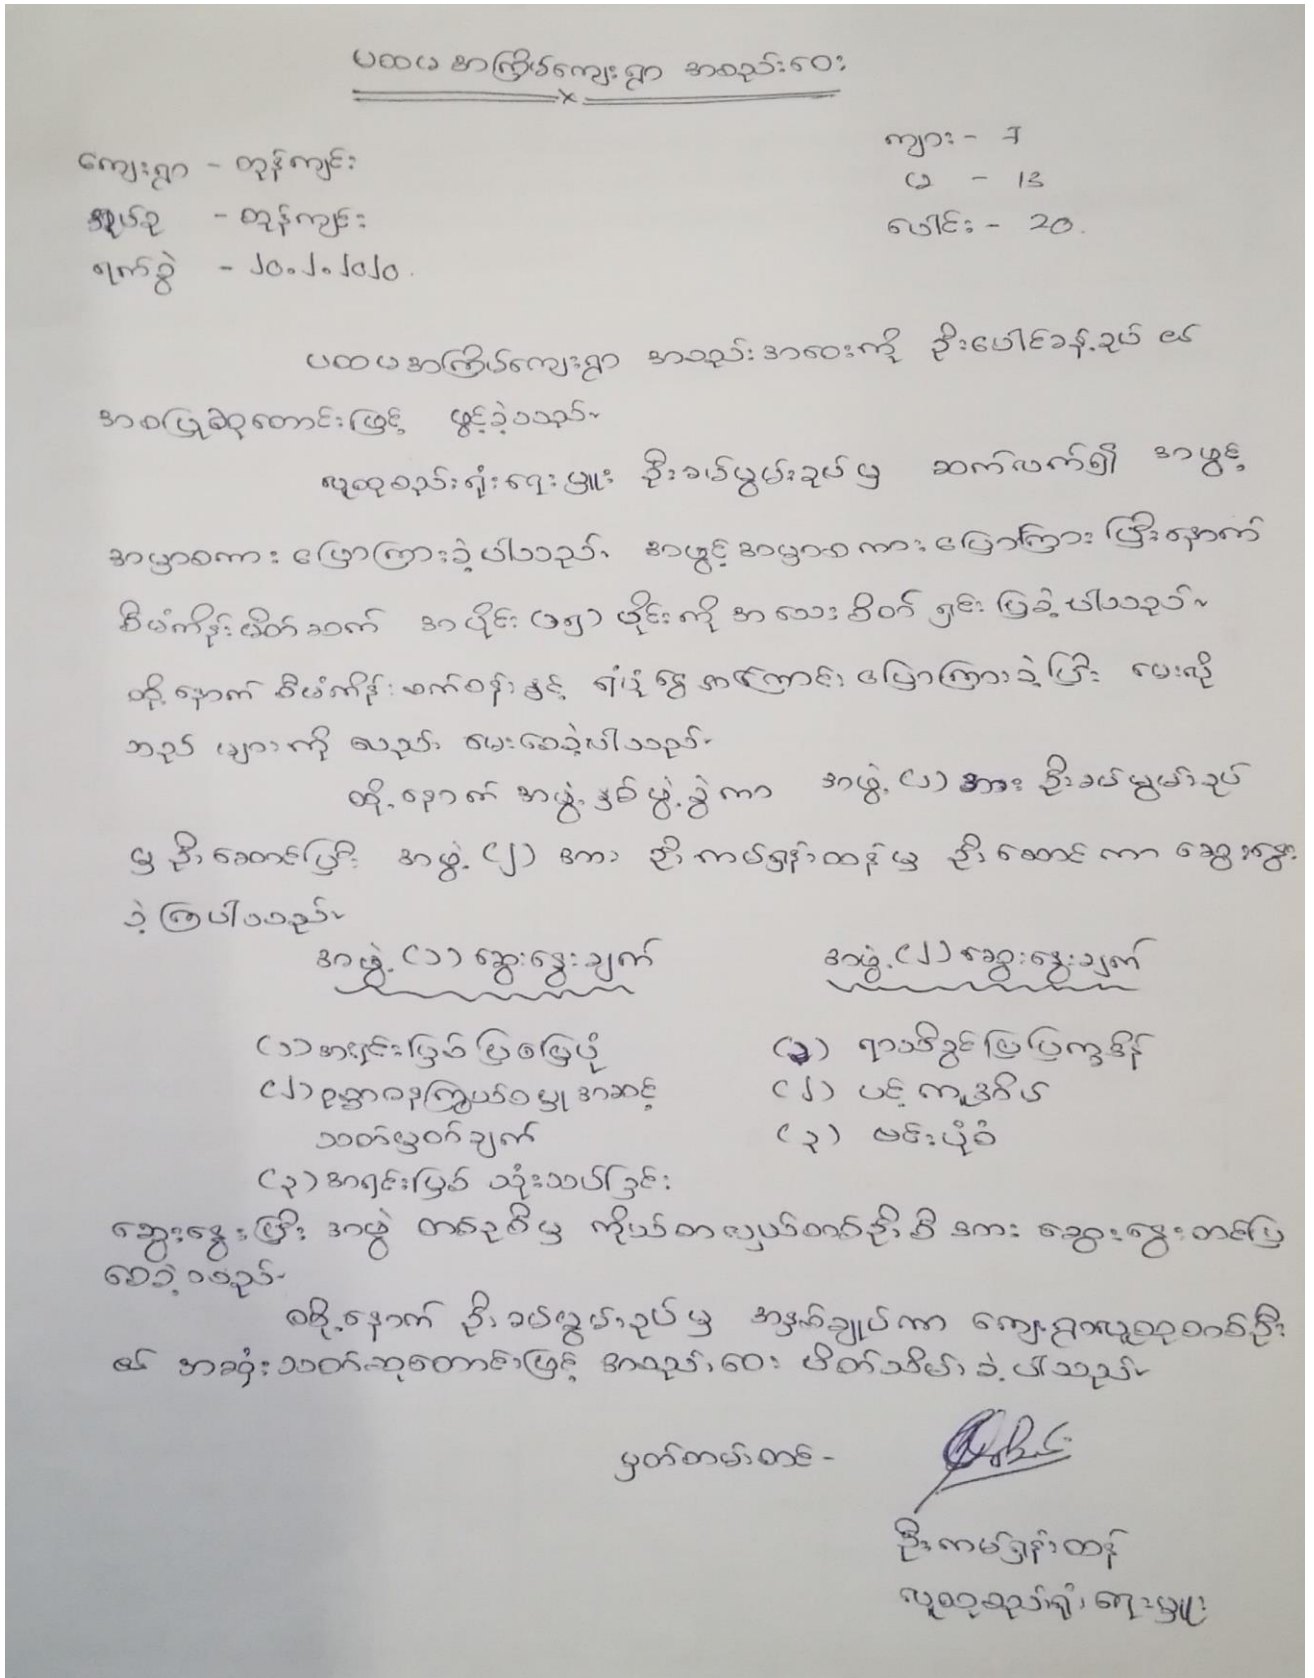 ပထမအကြိမ်ကျေးရွာ အစည်းဝေး
ကျေးရွာ - တုန်ကျင်း
ကျား - 7
အုပ်စု - တုန်ကျင်း
မ - 13
ရက်စွဲ - ၂၀.၂.၂၀၂၀.
ပေါင်း - 20.
ပထမအကြိမ်ကျေးရွာ အစည်းအဝေးကို ဦးပေါင်ခန့်ခုပ် ၏
အစပြုဆုတောင်းဖြင့် ဖွင့်ခဲ့သည်။
လူထုစည်းရုံးရေးမှူး ဦးခမ်မွမ်းခုပ်မှ ဆက်လက်၍ အဖွင့်
အမှာစကား ပြောကြားခဲ့ပါသည်။ အဖွင့်အမှာစကား ပြောကြားပြီးနောက်
စီမံကိန်းမိတ်ဆက် အပိုင်း (၁၅) ပိုင်းကို အသေးစိတ် ရှင်းပြခဲ့ပါသည်။
ထို့နောက် စီမံကိန်းစက်ဝန်းနှင့် ရံပုံငွေ အကြောင်း ပြောကြားခဲ့ပြီး မေးလို
သည် များကို လည်း မေးစေခဲ့ပါသည်။
ထို့နောက် အဖွဲ့နှစ်ဖွဲ့ခွဲကာ အဖွဲ့ (၁) အား ဦးခမ်မွမ်းခုပ်
မှ ဦးဆောင်ပြီး အဖွဲ့ (၂) အား ဦးကမ်ရှန်းထန်မှ ဦးဆောင်ကာ ဆွေးနွေး
ခဲ့ကြပါသည်။
အဖွဲ့ (၁) ဆွေးနွေးချက်
အဖွဲ့ (၂) ဆွေးနွေးချက်
(၁) အရင်းမြစ်ပြမြေပုံ
(၁) ရာသီခွင်ပြပြက္ခဒိန်
(၂) ဥစ္စာဓနကြွယ်ဝမှုအဆင့်
(၂) ပင့်ကူအိမ်
သတ်မှတ်ချက်
(၃) ဗင်းပုံစံ
(၃) အရင်းမြစ် သုံးသပ်ခြင်း
ဆွေးနွေးပြီး အဖွဲ့ တစ်ခုစီမှ ကိုယ်စားလှယ်တစ်ဦးစီ အား ဆွေးနွေးတင်ပြ
စေခဲ့သည်။
ထို့နောက် ဦးခမ်မွမ်းခုပ်မှ အနှစ်ချုပ်ကာ ကျေးရွာလူထုတစ်ဦး
၏ အဆုံးသတ်ဆုတောင်းဖြင့် အစည်းဝေး ပိတ်သိမ်းခဲ့ပါသည်။
မှတ်တမ်းတင် -
ဦးကမ်ရှန်းထန်
လူထုစည်းရုံးရေးမှူး